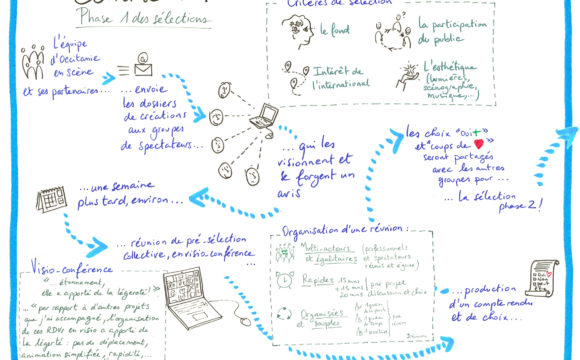 Phase 1 des sélections
Critères de sélection
le fond
la participation
du public
Intérêt de
l'international
L'esthétique
(lumières,
scénographie,
musique,...)
L'équipe
d'Occitanie
en scène
et ses partenaires...
... envoie
les dossiers
de créations
aux groupes
de spectateurs...
... qui les
visionnent et
se forgent un
avis
les choix "oui +"
et "coups de ♥"
seront partagés
avec les autres
groupes pour...
... la sélection
phase 2!
... une semaine
plus tard, environ...
... réunion de pré-sélection
collective, en visio conférence...
Organisation d'une réunion :
Multi-acteurs
et égalitaires
(professionnels
et spectateurs
réunis et égaux)
Rapides
15 mins
+ 15 mins
par projet
20 mins discussion et choix
Organisées
et souples
Visio-conférence
" étonnament,
elle a apporté de la légèreté!"
... "par rapport à d'autres projets
que j'ai accompagné, l'organisation
de ces RDVs en visio a apporté de
la légèreté : pas de déplacement,
animation simplifiée, rapidité,...
...production
d'un compte rendu
et de choix...